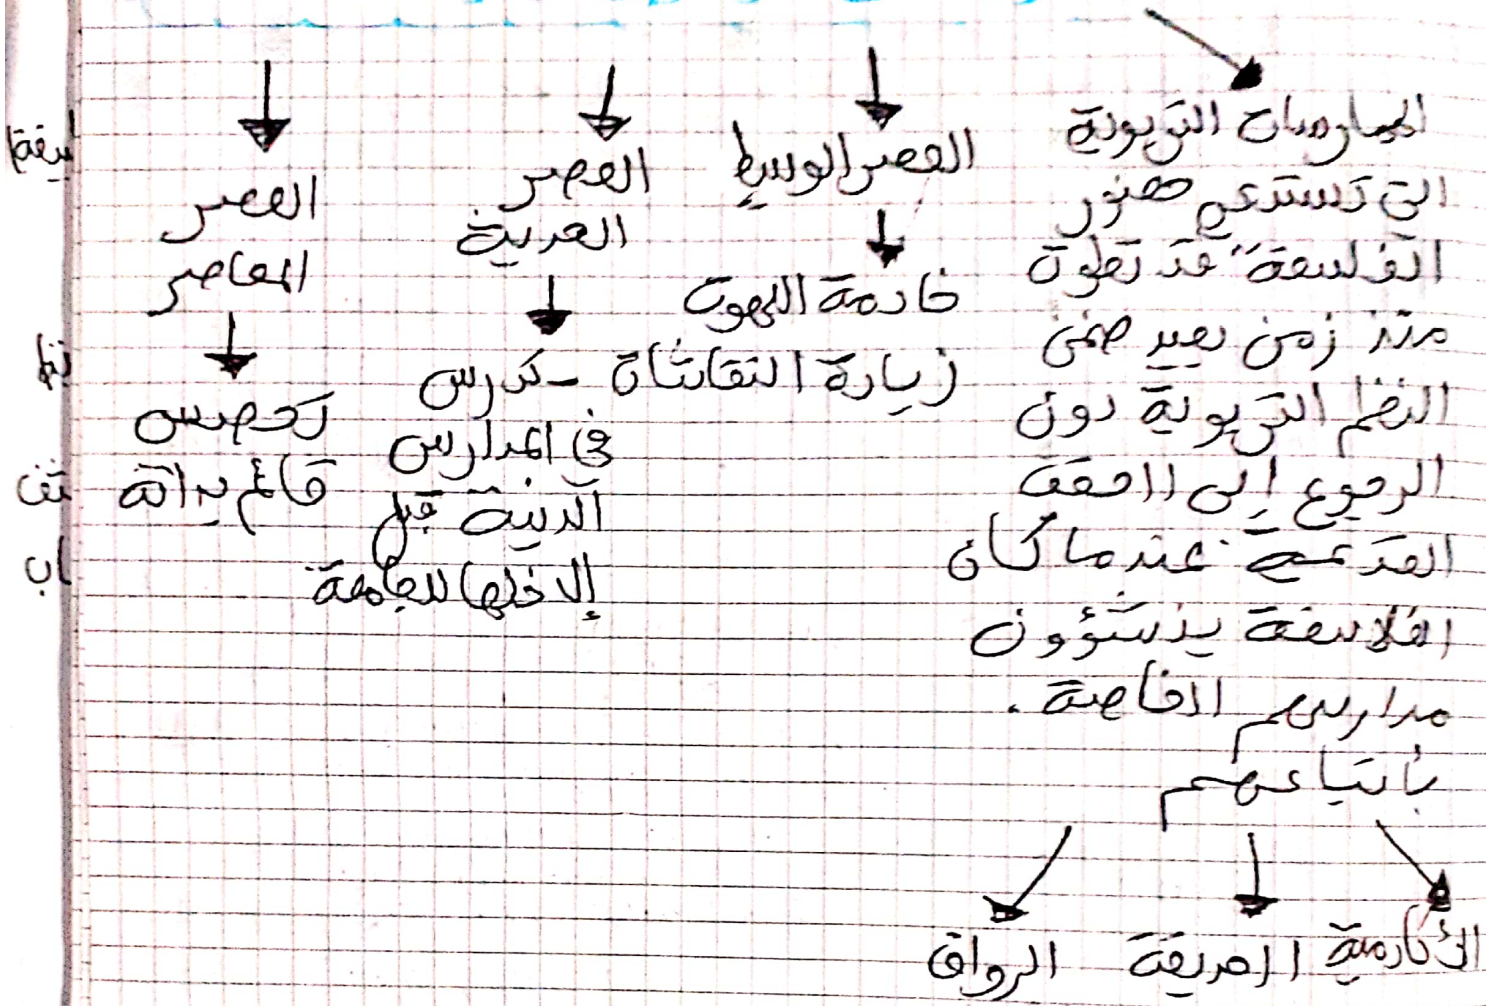 الممارسات التربوية
التي تستدعي حضور
الفلسفة" قد تطورت
منذ زمن بعيد ضمن
النظم التربوية دون
الرجوع إلى الحقبة
القديمة عندما كان
الفلاسفة ينشؤون
مدارسهم الخاصة.
بأتباعهم
الأكادمية
الحديقة
الرواق
العصر الوسيط
خادمة اللاهوت
زيادة النقاشات
العصر
الحديث
- تدرس
في المدارس
الدينية قبل
إدخالها للجامعة
العصر
المعاصر
تخصص
قائم بذاته